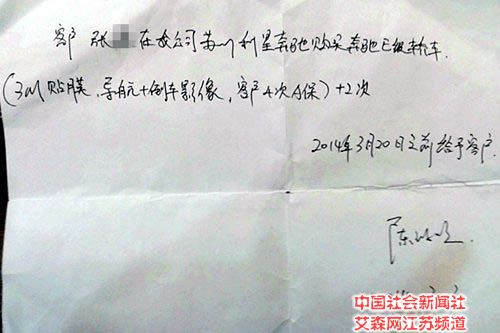 客户 张 在我公司苏州利星奔驰购买奔驰E级轿车.
(3M贴膜,导航+倒车影像,客户4次A保)+2次
2014年3月20日之前给予客户.
陈
中国社会新闻社
艾森网江苏频道